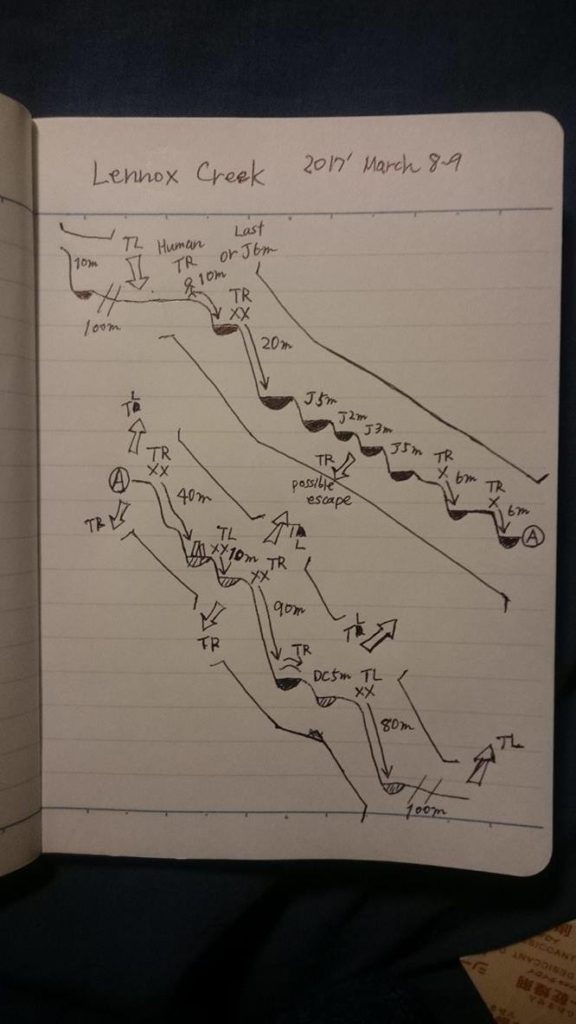 Lennox Creek 2017' March 8-9
10m
TL
Human
TR
10m
Last
or J6m
100m
TR
XX
20m
J5m
J2m
J3m
J5m
TR
possible
escape
TR
X
6m
TR
X
6m
A
TL
TR
XX
A
40m
TR
TL
XX
10m
TL
TR
XX
TR
90m
TL
TR
DC5m
TL
XX
80m
TL
100m
DESICCANT
乾燥剤